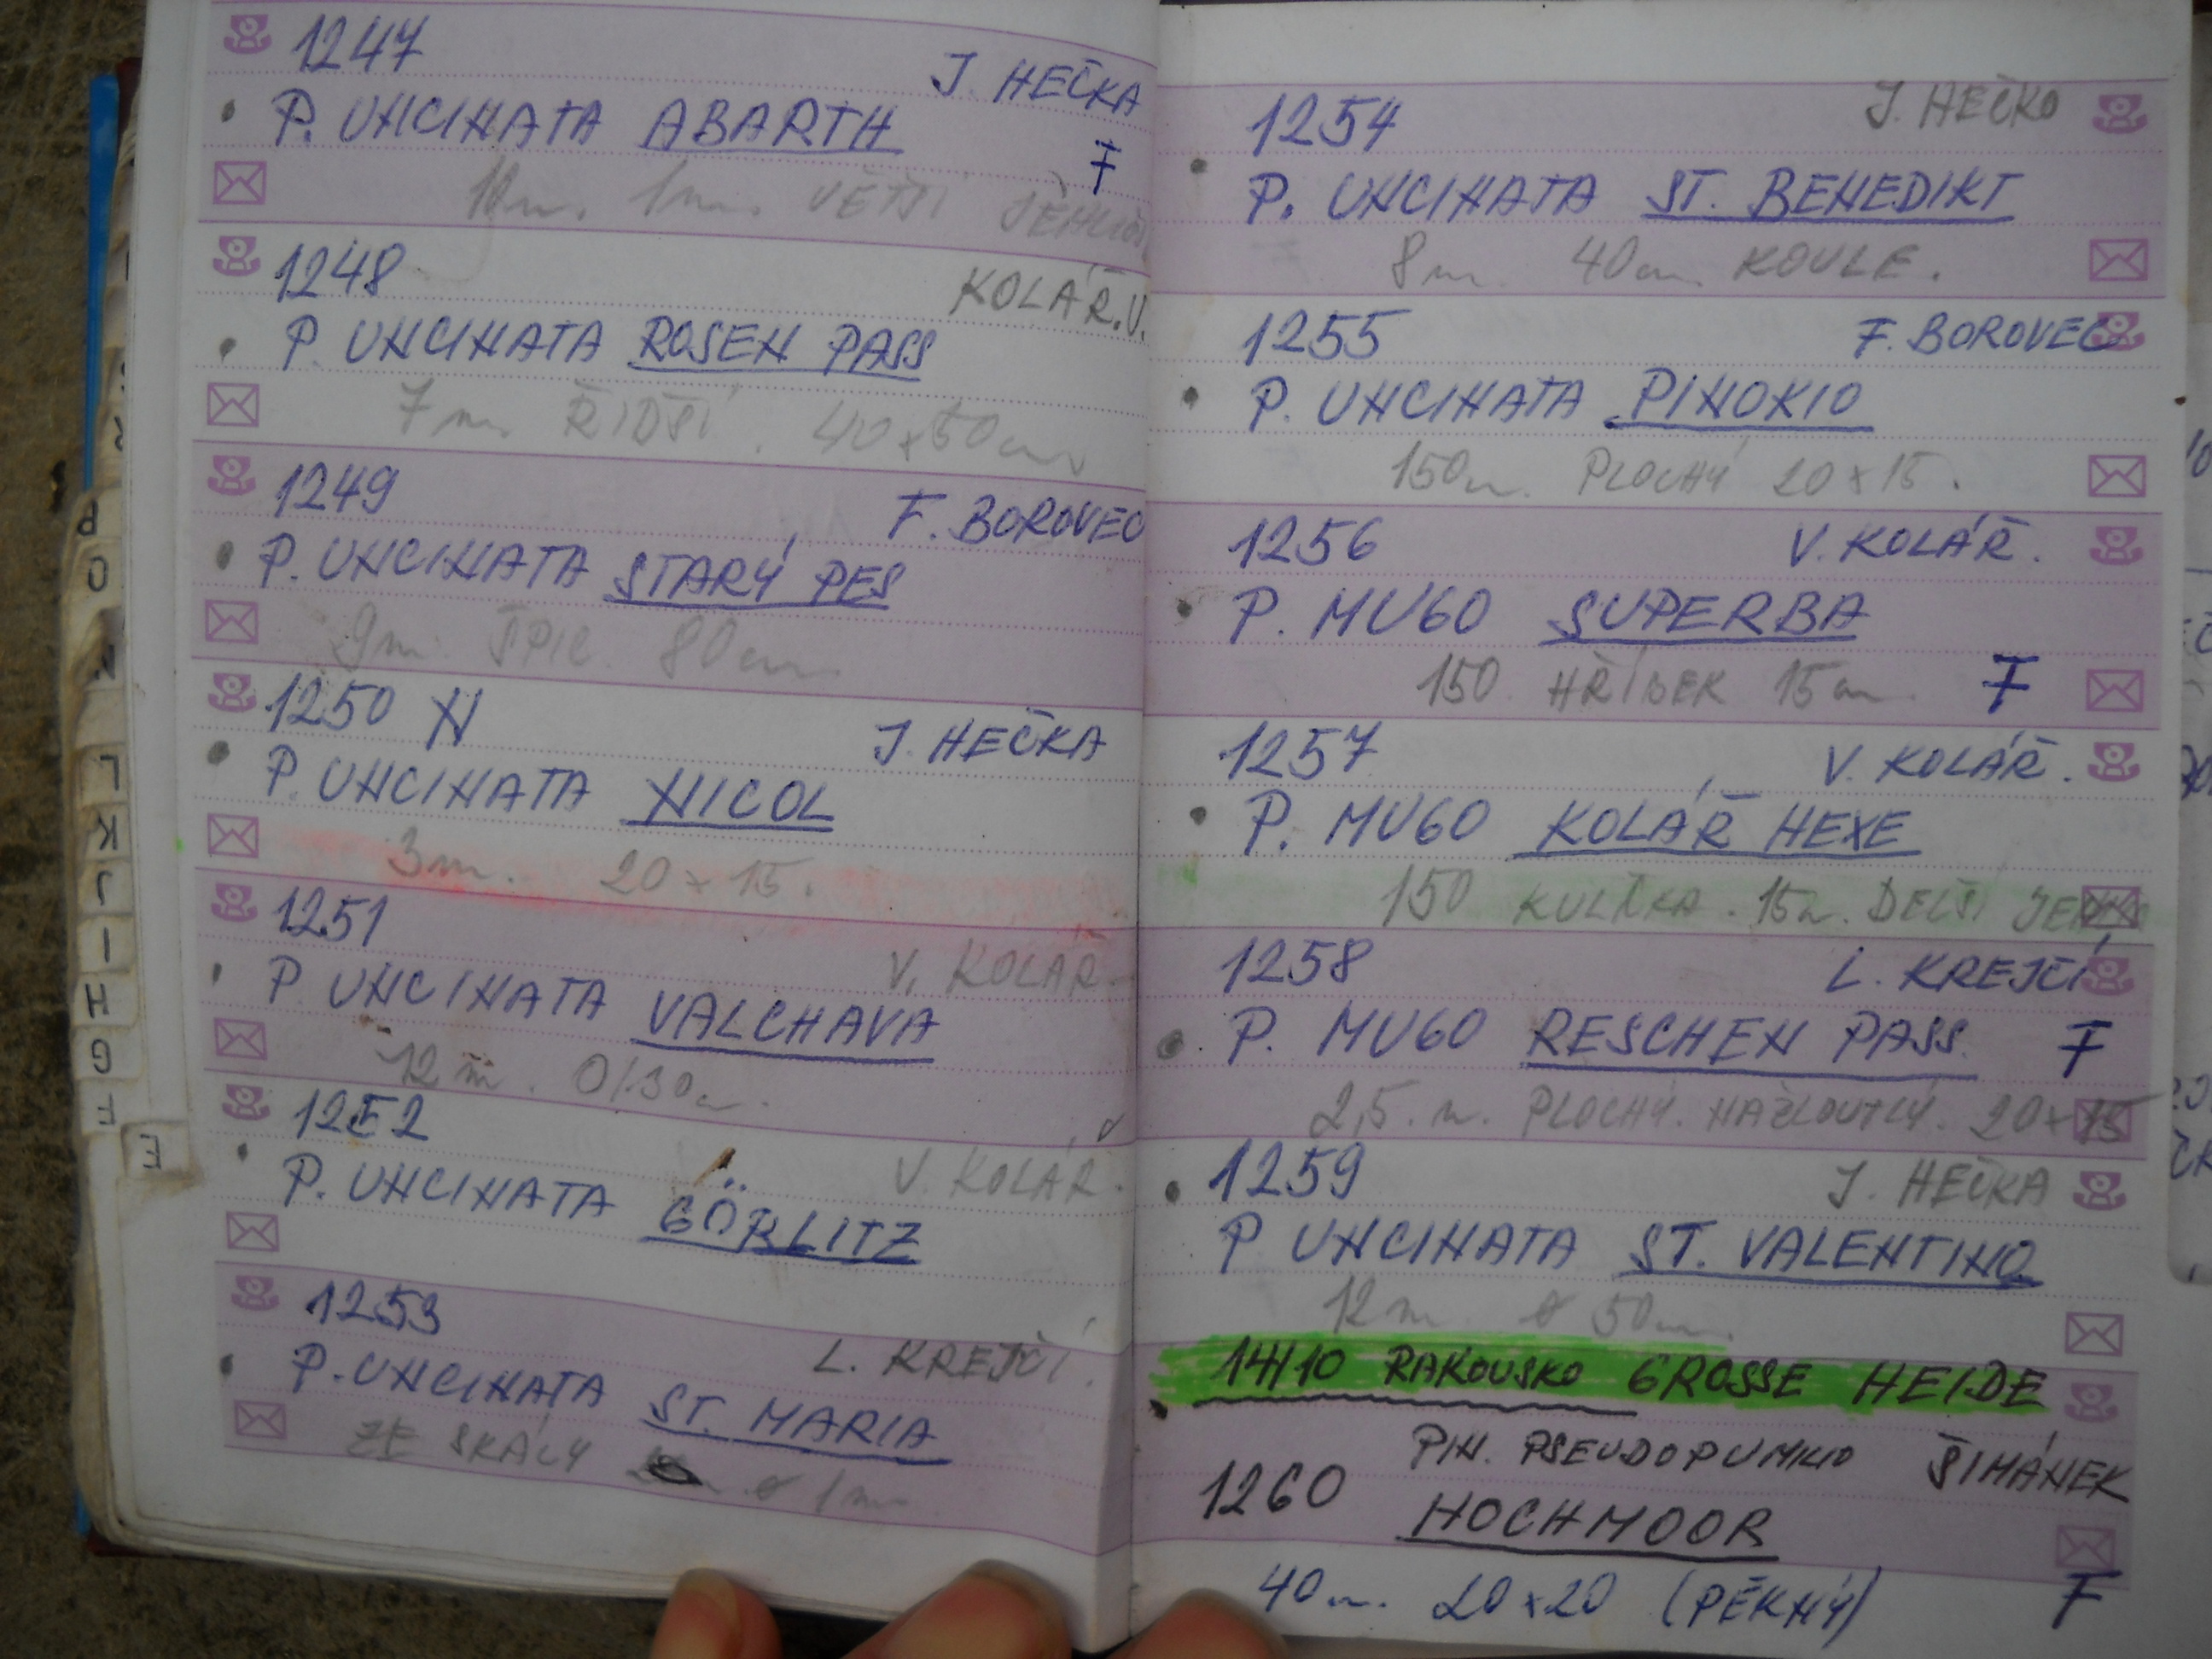 1247
J HEČKA
P. UNCINATA ABARTH
F
10m. 1m. VĚTŠÍ
1248
KOLÁŘ.V.
P. UNCINATA ROSEN PASS
7m. ŘIDŠÍ. 40x50cm
1249
F. BOROVEC
P. UNCINATA STARÝ PES
9m. ŠPIC. 80cm
1250 N
J. HEČKA
P. UNCINATA NICOL
3m. 20x15.
1251
V. KOLÁŘ
P UNCINATA VALCHAVA
12m.
1252
V. KOLÁŘ.
P. UNCINATA GÖRLITZ
1253
L. KREJČÍ.
P. UNCINATA ST. MARIA
ZE SKÁLY ø 1m
1254
J. HEČKO
P. UNCINATA ST. BENEDIKT
8m. 40cm KOULE.
1255
F. BOROVEC
P. UNCINATA PINOKIO
150m. PLOCHÝ 20x15.
1256
V. KOLÁŘ.
P. MUGO SUPERBA
150 HŘÍBEK 15cm F
1257
V. KOLÁŘ.
P. MUGO KOLÁŘ HEXE
150 KULIČKA. 15m. DELŠÍ
1258
L. KREJČÍ
P. MUGO RESCHEN PASS F
2,5. m. PLOCHÝ. NAŽLOUTLÝ. 20x15
1259
J. HEČKA
P UNCINATA ST. VALENTINO
12m ø 50cm.
14/10 RAKOUSKO GROSSE HEIDE
PIN. PSEUDOPUMILIO ŠIMÁNEK
1260 HOCHMOOR
40m. 20x20 (PĚKNÝ) F